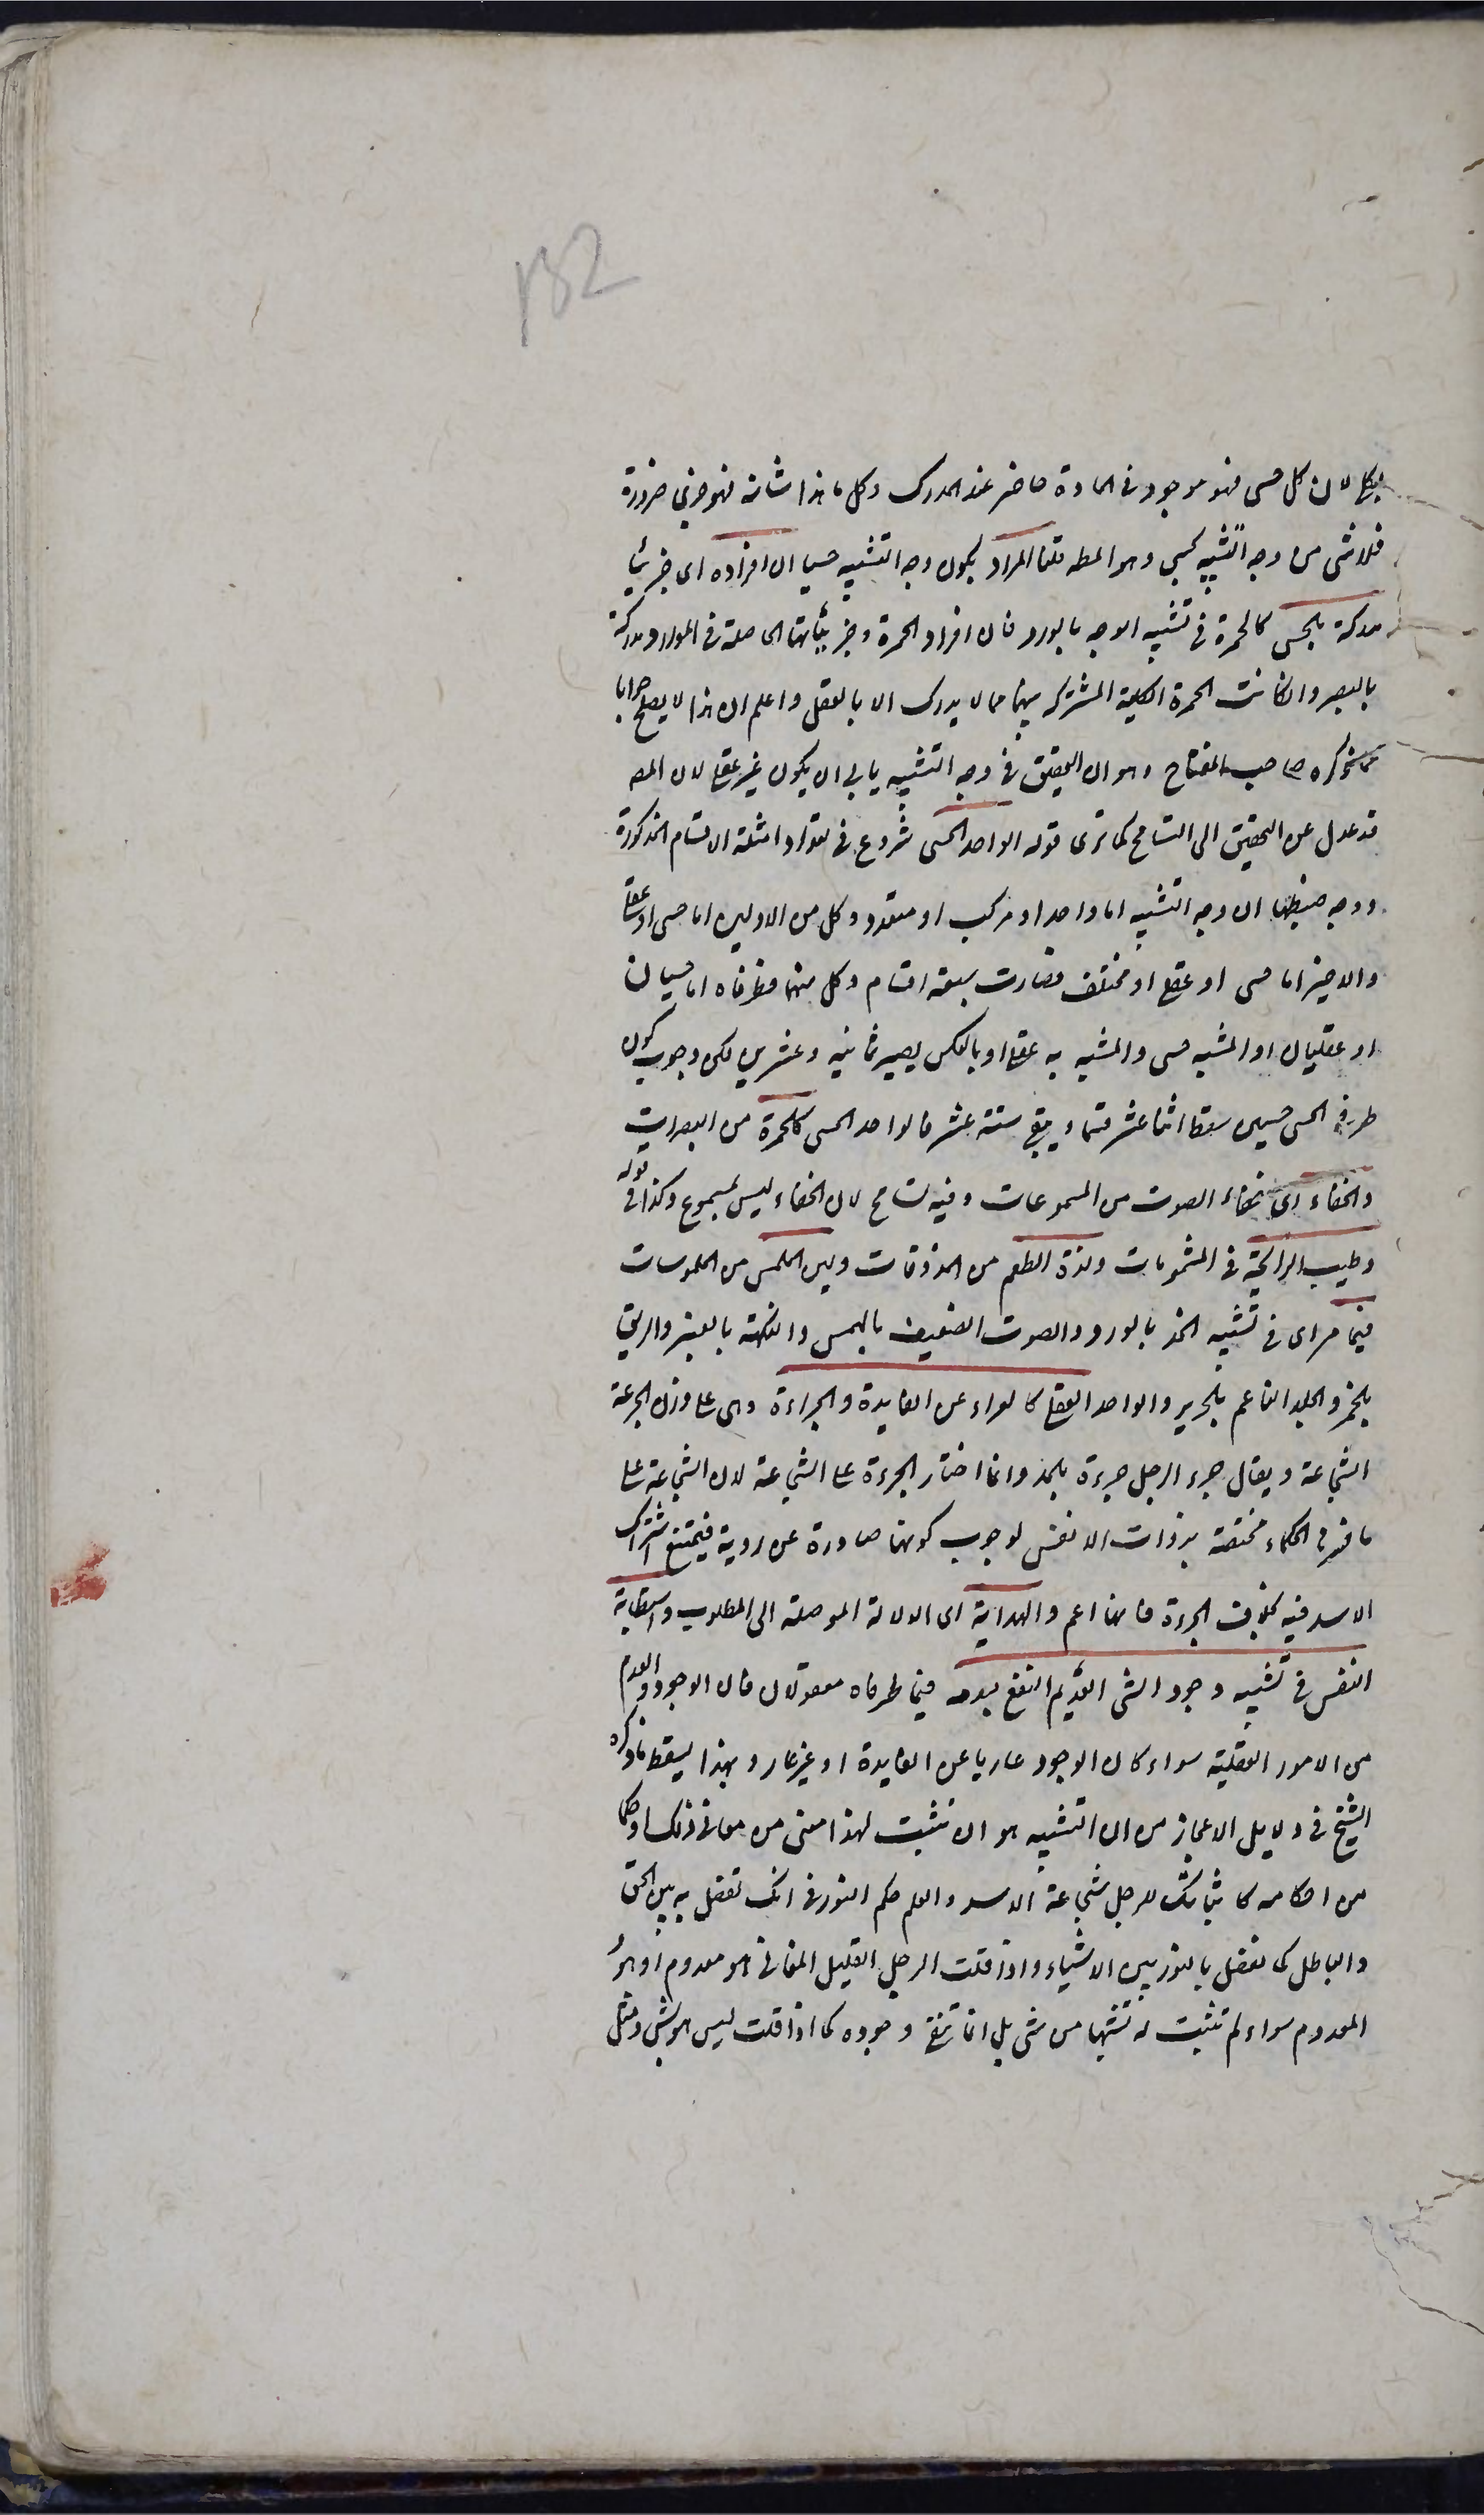 132
بكلي لان كل حسي فهو موجود في المادة حاضر عند المدرك وكل ما هذا شانه فهو جزئي ضرورة
فلا شى من وجه التشبيه بحسي وهو المط قلنا المراد بكون وجه التشبيه حسيا ان افراده اى جزئيا
مدركة بالحس كالحمرة في تشبيه الوجه بالورد فان افراد الحمرة وجزئياتها الحاصلة في الموارد مدركة
بالبصر وان كانت الحمرة الكلية المشتركة بينها مما لا يدرك الا بالعقل واعلم ان هذا لا يصلح جوابا
عما ذكره صاحب المفتاح وهو ان التحقيق في وجه التشبيه يابى ان يكون غير عقلي لان المصـ
قد عدل عن التحقيق الى التسامح كما ترى قوله الواحد الحسي شروع في تعداد امثلة الاقسام المذكورة
ووجه ضبطها ان وجه التشبيه اما واحد او مركب او متعدد وكل من الاولين اما حسي او عقلي
والاخير اما حسي او عقلي او مختلف فصارت سبعة اقسام وكل منها فطرفاه اما حسيان
او عقليان او المشبه حسي والمشبه به عقلي او بالعكس يصير ثمانيه وعشرين لكن وجوب كون
طرفي الحسي حسيين سقط اثنا عشر قسما ويبقى ستة عشر فالواحد الحسي كالحمرة من المبصرات
والخفاء اى خفاء الصوت من المسموعات وفيه تسامح لان الخفاء ليس بمسموع وكذا في قوله
وطيب الرائحة في المشمومات ولذة الطعم من المذوقات ولين الملمس من الملموسات
فيما مر اى في تشبيه الخد بالورد والصوت الضعيف بالهمس والنكهة بالعنبر والريق
بالخمر والجلد الناعم بالحرير والواحد العقلي كالعراء عن الفايدة والجراءة وهى على وزن الجرعة
الشجاعة ويقال جرء الرجل جرءة بالمد وانما اختار الجرءة على الشجاعة لان الشجاعة على
ما فسره الحكماء مختصة بذوات الانفس لوجوب كونها صادرة عن روية فيمتنع اشتراك
الاسد فيه بخلاف الجرءة فانها اعم والهداية اى الدلالة الموصلة الى المطلوب واستطابة
النفس في تشبيه وجود الشى العديم النفع بعدمه فيما طرفاه معقولان فان الوجود والعدم
من الامور العقلية سواء كان الوجود عاريا عن الفايدة او غير عار وبهذا يسقط ما ذكره
الشيخ في دلايل الاعجاز من ان التشبيه هو ان تثبت لهذا معنى من معاني ذلك او حكما
من احكامه كاثباتك للرجل شجاعة الاسد والعلم حكم النور في انك تفصل به بين الحق
والباطل كما تفصل بالنور بين الاشياء واذا قلت الرجل القليل المعاني هو معدوم او هو
المعدوم سواء لم تثبت له شبها من شى بل انما تنفي وجوده كما اذا قلت ليس هو بشى ومثل